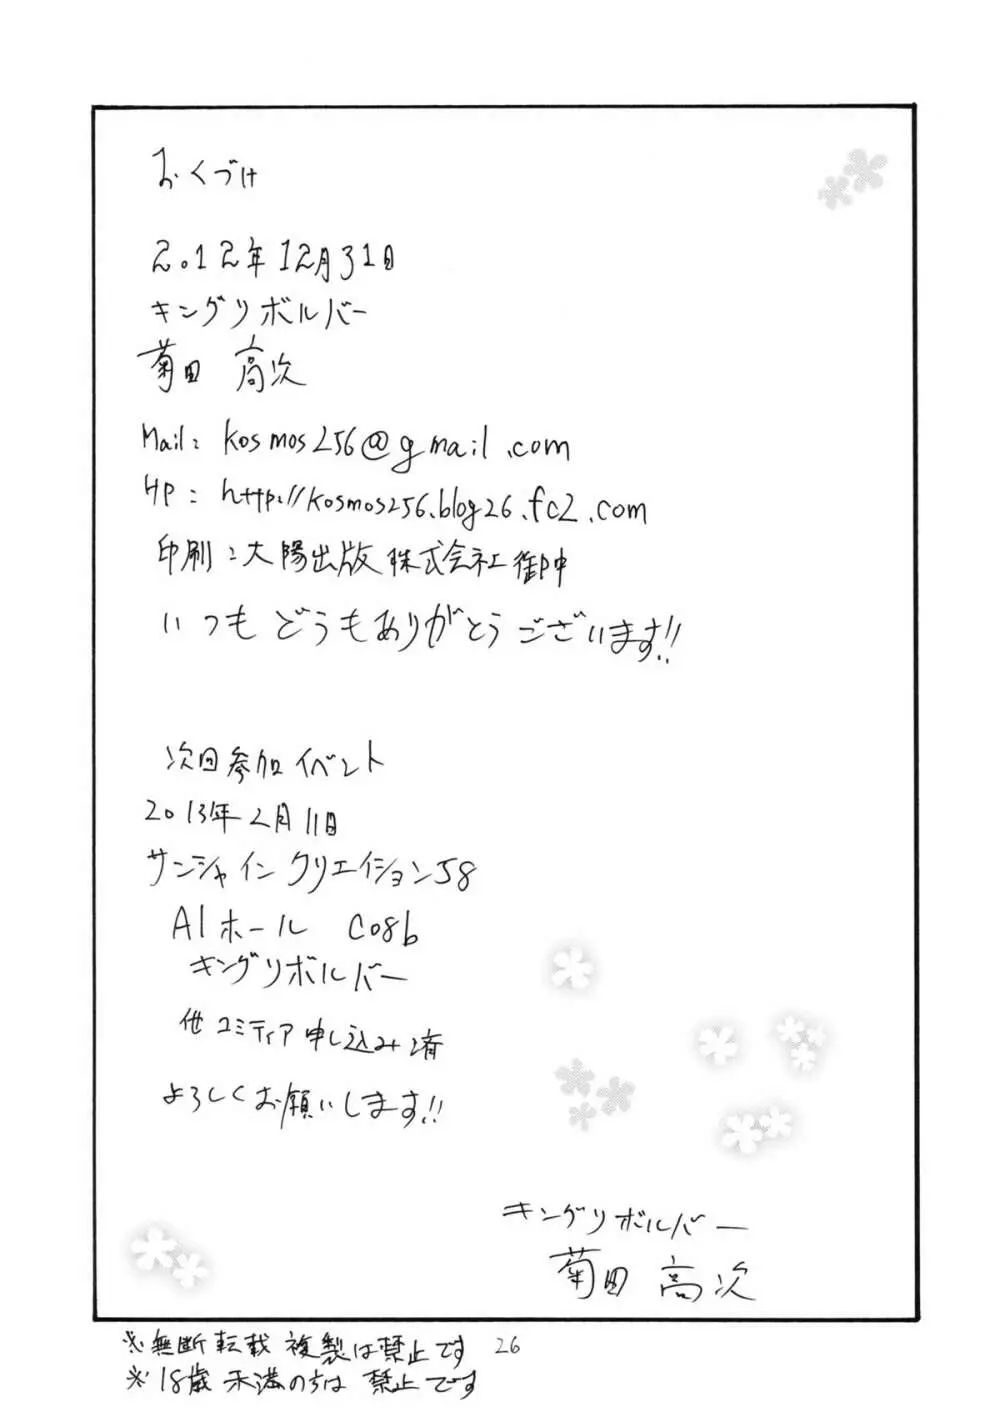 おくづけ
2012年12月31日
キングリボルバー
菊田 高次
Mail: kosmos256@gmail.com
HP: http://kosmos256.blog26.fc2.com
印刷:大陽出版株式会社御中
いつもどうもありがとうございます!!
次回参加イベント
2013年2月11日
サンシャインクリエイション58
A1ホール C08b
キングリボルバー
他コミティア申し込み済
よろしくお願いします!!
キングリボルバー
菊田 高次
※無断転載複製は禁止です 26
※18歳未満のちは禁止です